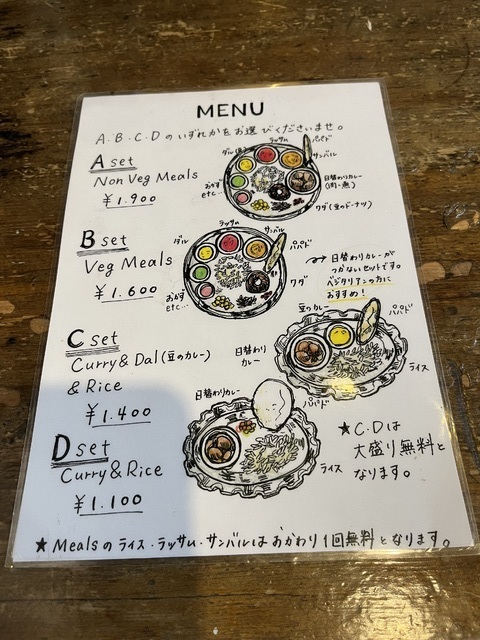 MENU
A.B.C.Dのいずれかをお選びくださいませ。
A set
Non Veg Meals
¥1.900
ダル
ラッサム
パパド
サンバル
日替わりカレー
(肉・魚)
ワダ(豆のドーナツ)
おかず
etc...
B set
Veg Meals
¥1.600
ダル
ラッサム
サンバル
パパド
ワダ
おかず
etc...
日替わりカレーが
つかないセットです。
ベジタリアンの方に
おすすめ!
C set
Curry & Dal(豆のカレー)
& Rice
¥1.400
日替わり
カレー
豆のカレー
パパド
ライス
D set
Curry & Rice
¥1.100
日替わりカレー
パパド
ライス
★C.Dは
大盛り無料と
なります。
★Mealsのライス・ラッサム・サンバルはおかわり1回無料となります。